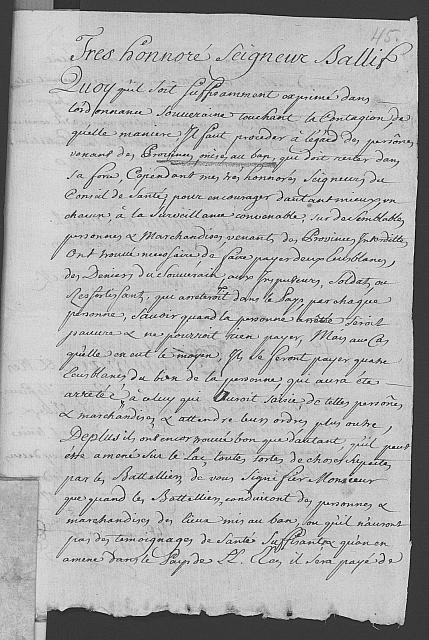 45.
Tres honnoré Seigneur Ballif
Quoy qu'il soit suffisamment exprimé dans
l'ordonnance Souveraine touchant la Contagion, de
quelle maniere Il faut proceder à l'égard des persônes
venant des Provinces mises au ban, qui doit rester dans
sa force, Cependant mes tres honnorés Seigneurs du
Conseil de Santé, pour encourager d'autant mieux un
chacun, à la Surveillance convenable, sur de semblables
personnes & Marchandises venants des Provinces Interdittes
Ont trouvé necessaire de faire payer deux Eusblancs,
des Deniers du Souverain aux Inspecteurs, Soldats, ou
Ressortissants, qui arreteront dans le Pays, par chaque
personne, Savoir quand la personne arretée seroit
pauvre & ne pourroit rien payer, Mais au Cas
qu'elle en eut le moyen, Ils se feront payer quatre
Eusblancs du bien de la personne qui aura été
arretée, à celuy qui auroit saisie de telles persônes
& marchandises, & attendre leurs ordres plus outre,
Deplus ils ont encor trouvé bon que d'autant, qu'il peut
être amené sur le Lac, toutes sortes de choses
par les Battelliers de vous signifier Monsieur
que quand les Battelliers, conduiront des personnes &
marchandises des lieux mis au ban, ou qu'il n'auront
pas des temoignages de Santé Suffisants & qu'on en
amene dans le Pays de LL. il sera payé de